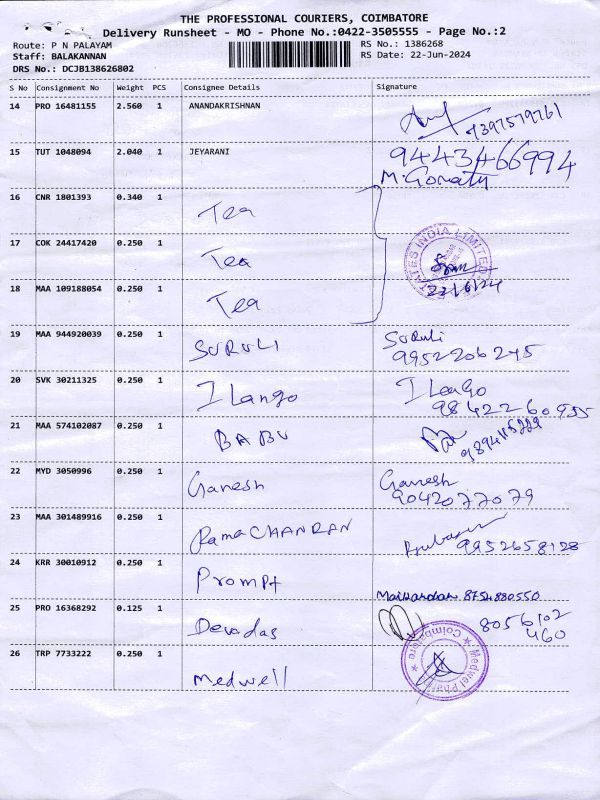 THE PROFESSIONAL COURIERS, COIMBATORE
Delivery Runsheet - MO - Phone No.:0422-3505555 - Page No.:2
Route: P N PALAYAM RS No.: 1386268
Staff: BALAKANNAN RS Date: 22-Jun-2024
DRS No.: DCJB138626802
S No Consignment No Weight PCS Consignee Details Signature
14 PRO 16481155 2.560 1 ANANDAKRISHNAN
15 TUT 1048094 2.040 1 JEYARANI 9443466994
M. Gomathy
16 CNR 1801393 0.340 1 Tea
17 COK 24417420 0.250 1 Tea
ATES INDIA LIMITED
18 MAA 109188054 1 0.250 Tea 22/6/24
19 MAA 944920039 0.250 1 SURULI Suruli
9952206245
20 SVK 30211325 0.250 1 Ilango Ilango
9842260955
21 MAA 574102087 0.250 1 BABU
22 MYD 3050996 0.250 1 Ganesh Ganesh
9042077079
23 MAA 301489916 0.250 1 RamaCHANDRAN 9952658128
24 KRR 30010912 0.250 1 Prompt 8754880550
25 PRO 16368292 0.125 1 Devadas 8056102
460
26 TRP 7733222 0.250 1 Medwell
Coimbatore